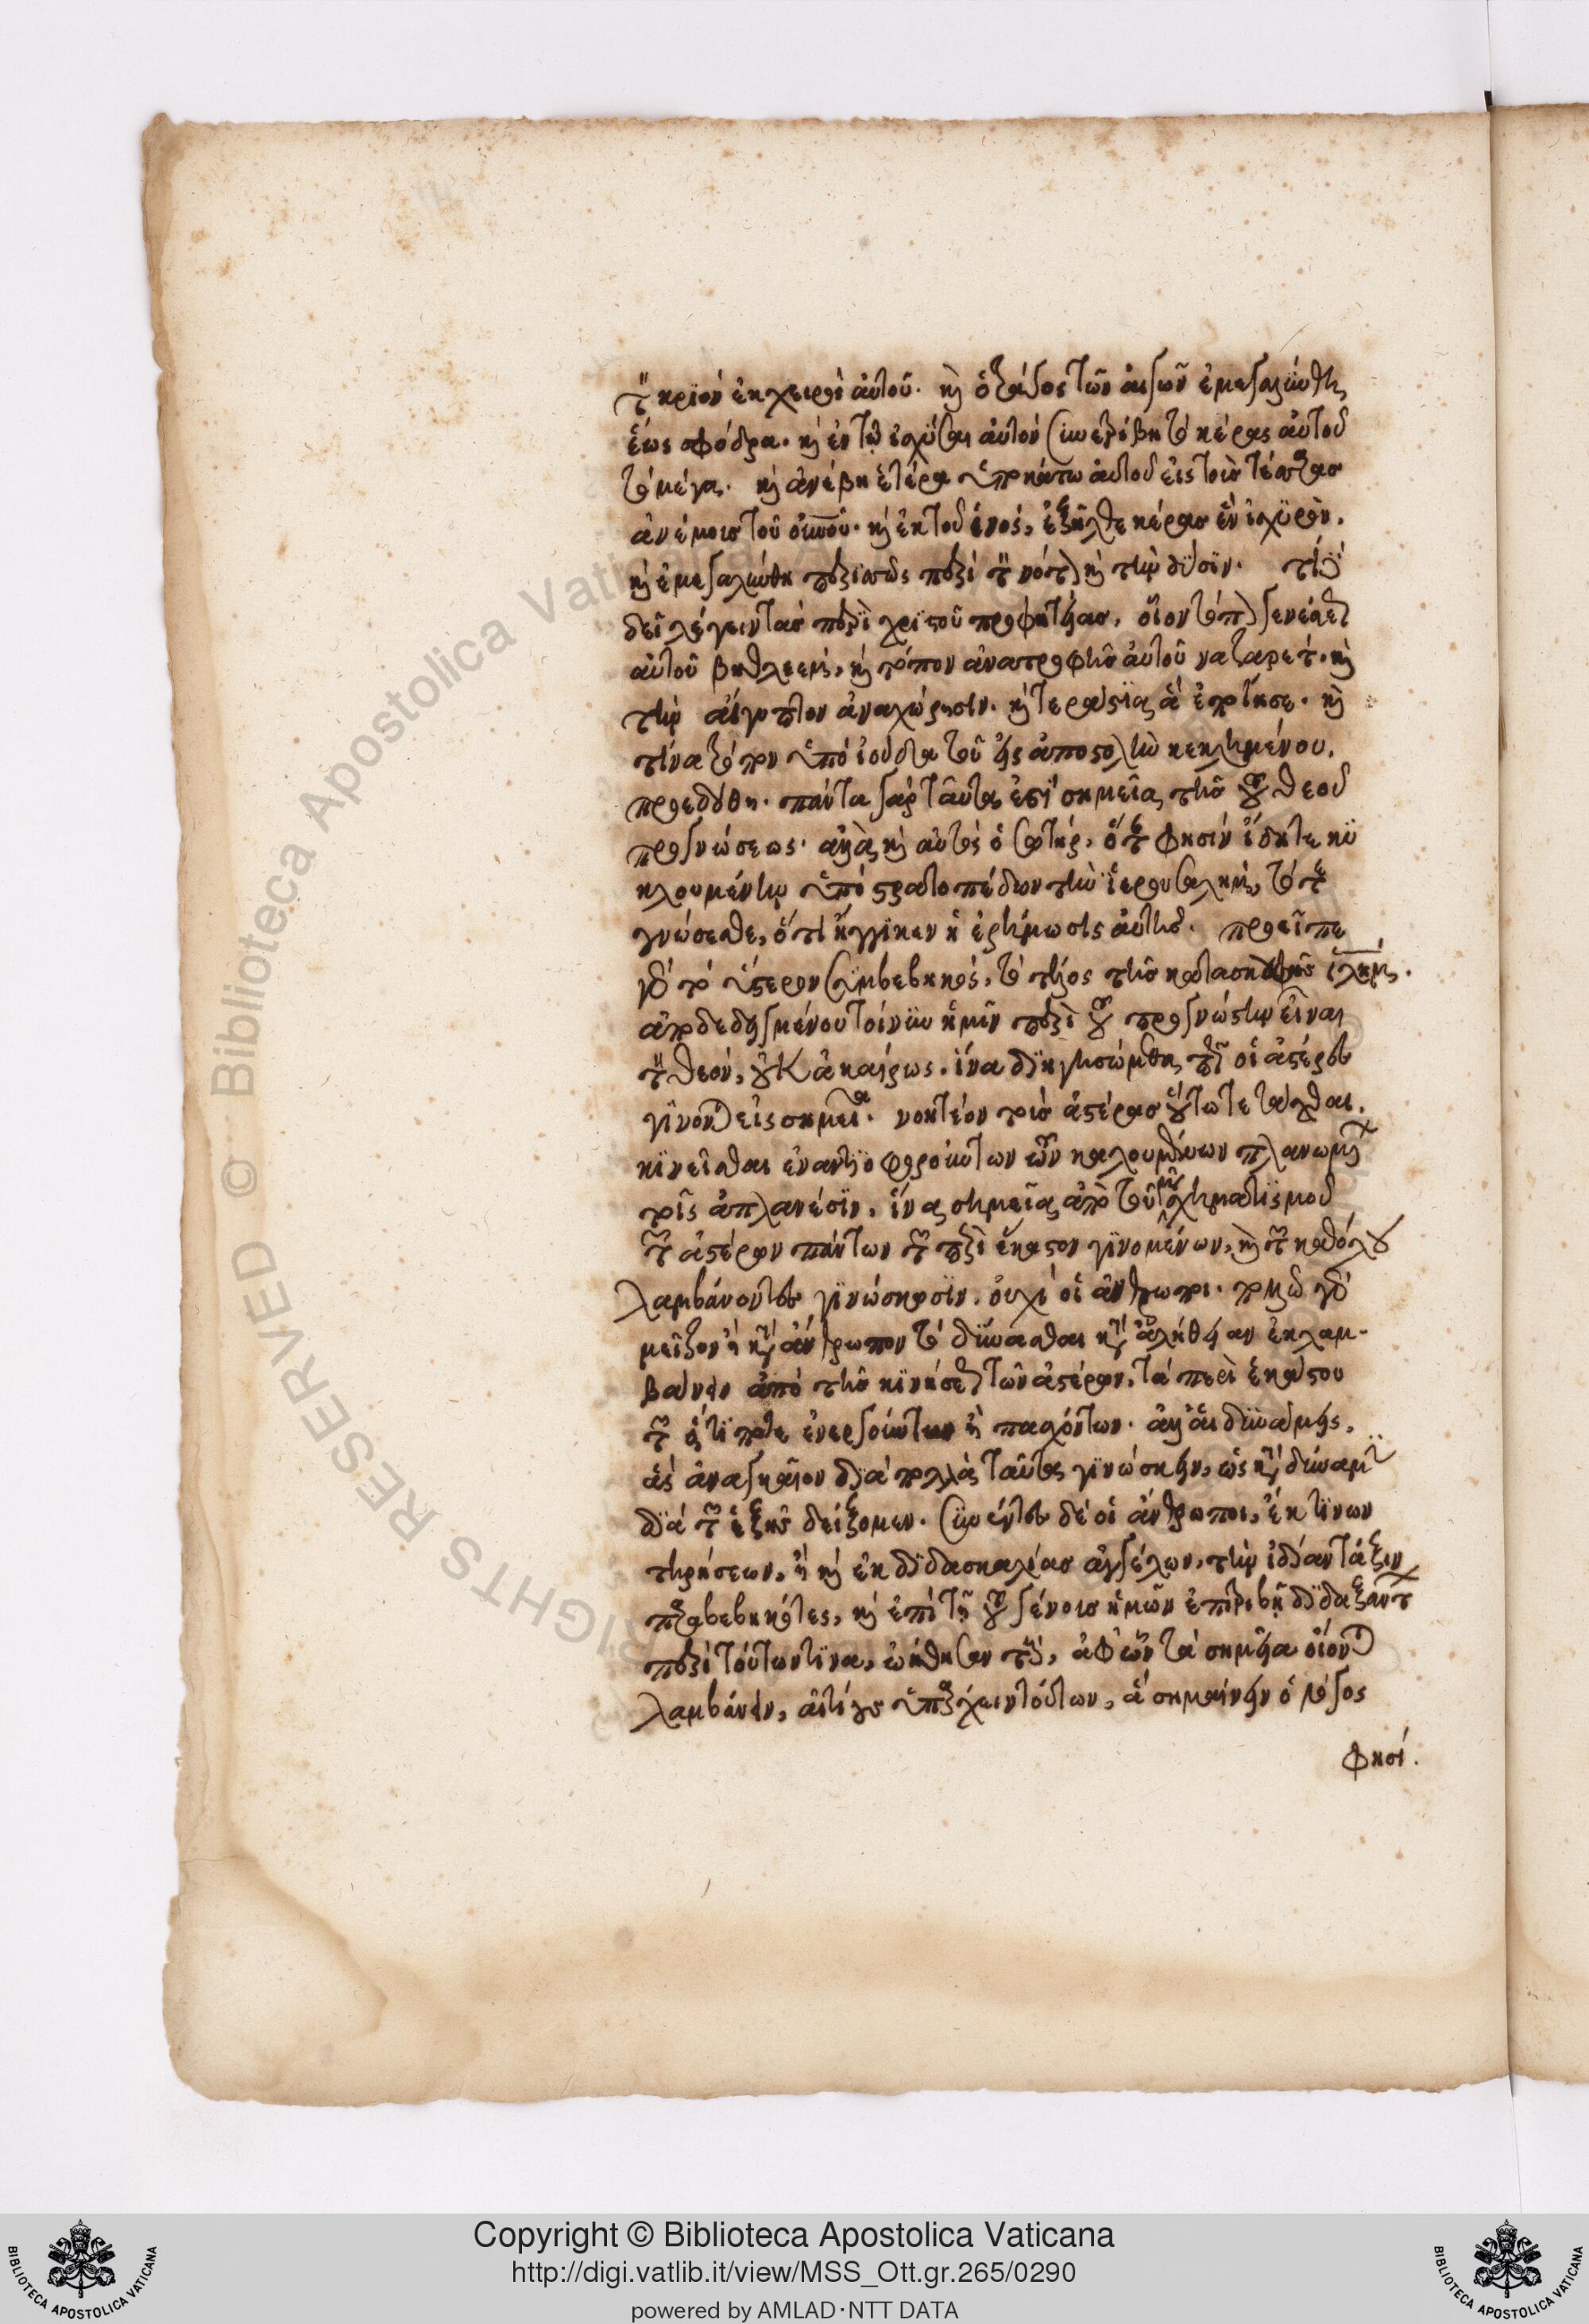 τὸν κριὸν ἐκ χειρὸς αὐτοῦ. καὶ ὁ τράγος τῶν αἰγῶν ἐμεγαλύνθη
ἕως σφόδρα. καὶ ἐν τῷ ἰσχύσαι αὐτὸν συνετρίβη τὸ κέρας αὐτοῦ
τὸ μέγα. καὶ ἀνέβη ἕτερα ὑποκάτω αὐτοῦ εἰς τοὺς τέσσαρας
ἀνέμους τοῦ οὐνοῦ. καὶ ἐκ τοῦ ἑνός, ἐξῆλθε κέρας ἓν ἰσχυρόν.
καὶ ἐμεγαλύνθη περισσῶς πρὸς τὸν νότον καὶ τὴν δύσιν. τί
δεῖ λέγειν τὰς περὶ χριστοῦ προφητείας, οἷον τόπον γενέσεως
αὐτοῦ βηθλεέμ, καὶ τόπον ἀναστροφῆς αὐτοῦ ναζαρέτ. καὶ
τὴν αἴγυπτον ἀναχώρησιν. καὶ τεράστια ἃ ἐποίησε. καὶ
τίνα τρόπον ὑπὸ ἰούδα τοῦ εἰς ἀποστολὴν κεκλημένου,
προεδόθη. πάντα γὰρ ταῦτα ἐπὶ σημεῖα τῆς τοῦ θεοῦ
προγνώσεως. ἀλλὰ καὶ αὐτὸς ὁ σωτήρ, ὅταν φησὶν ἴδητε κυ
κλουμένην ὑπὸ στρατοπέδων τὴν ἱερουσαλήμ, τότε
γνώσεσθε, ὅτι ἤγγικεν ἡ ἐρήμωσις αὐτῆς. προεῖπε
γὰρ τὸ ὕστερον συμβεβηκός, τὸ τέλος τῆς κατασκαφῆς ἰλήμ.
ἀποδεδειγμένου τοίνυν ἡμῖν περὶ τοῦ προγνώστην εἶναι
τὸν θεόν, οὐκ ἀκαίρως. ἵνα διηγησώμεθα πῶς οἱ ἀστέρες
γίνονται εἰς σημεῖα. νοητέον τοὺς ἀστέρας οὕτω τετάχθαι
κινεῖσθαι ἐναντιοφορούντων τῶν καλουμένων πλανωμένων
τοῖς ἀπλανέσιν. ἵνα σημεῖα ἀπὸ τοῦ σχηματισμοῦ
τῶν ἀστέρων πάντων τῶν περὶ ἕκαστον γινομένων, καὶ τῶν καθόλου
λαμβάνοντες γινώσκωσιν. οὐχὶ οἱ ἄνθρωποι. πολλῷ γὰρ
μεῖζον ἢ κατὰ ἄνθρωπον τὸ δύνασθαι κατὰ ἀλήθειαν ἐκλαμ-
βάνειν ἀπὸ τῆς κινήσεως τῶν ἀστέρων. τὰ περὶ ἑκάστου
τῶν ὅ τι ποτε ἐνεργούντων ἢ παθόντων. ἀλλ' αἱ δυνάμεις,
ἃς ἀναγκαῖον διὰ πολλὰ ταῦτα γινώσκειν, ὡς κατὰ δύναμιν
διὰ τῶν ἑξῆς δείξομεν. συνέντες δὲ οἱ ἄνθρωποι, ἔκ τινων
τηρήσεων, ἢ καὶ ἐκ διδασκαλίας ἀγγέλων, τὴν ἰδίαν τάξιν
παραβεβηκότες, καὶ ἐπὶ τῇ τοῦ γένους ἡμῶν ἐπιτριβῇ διδαξάντων
περὶ τούτων τινα, ᾠήθησαν τοὺς, ἀφ' ὧν τὰ σημεῖα οἴονται
λαμβάνειν, αἰτίους ὑπάρχειν τούτων, ἃ σημαίνειν ὁ λόγος
φησί.